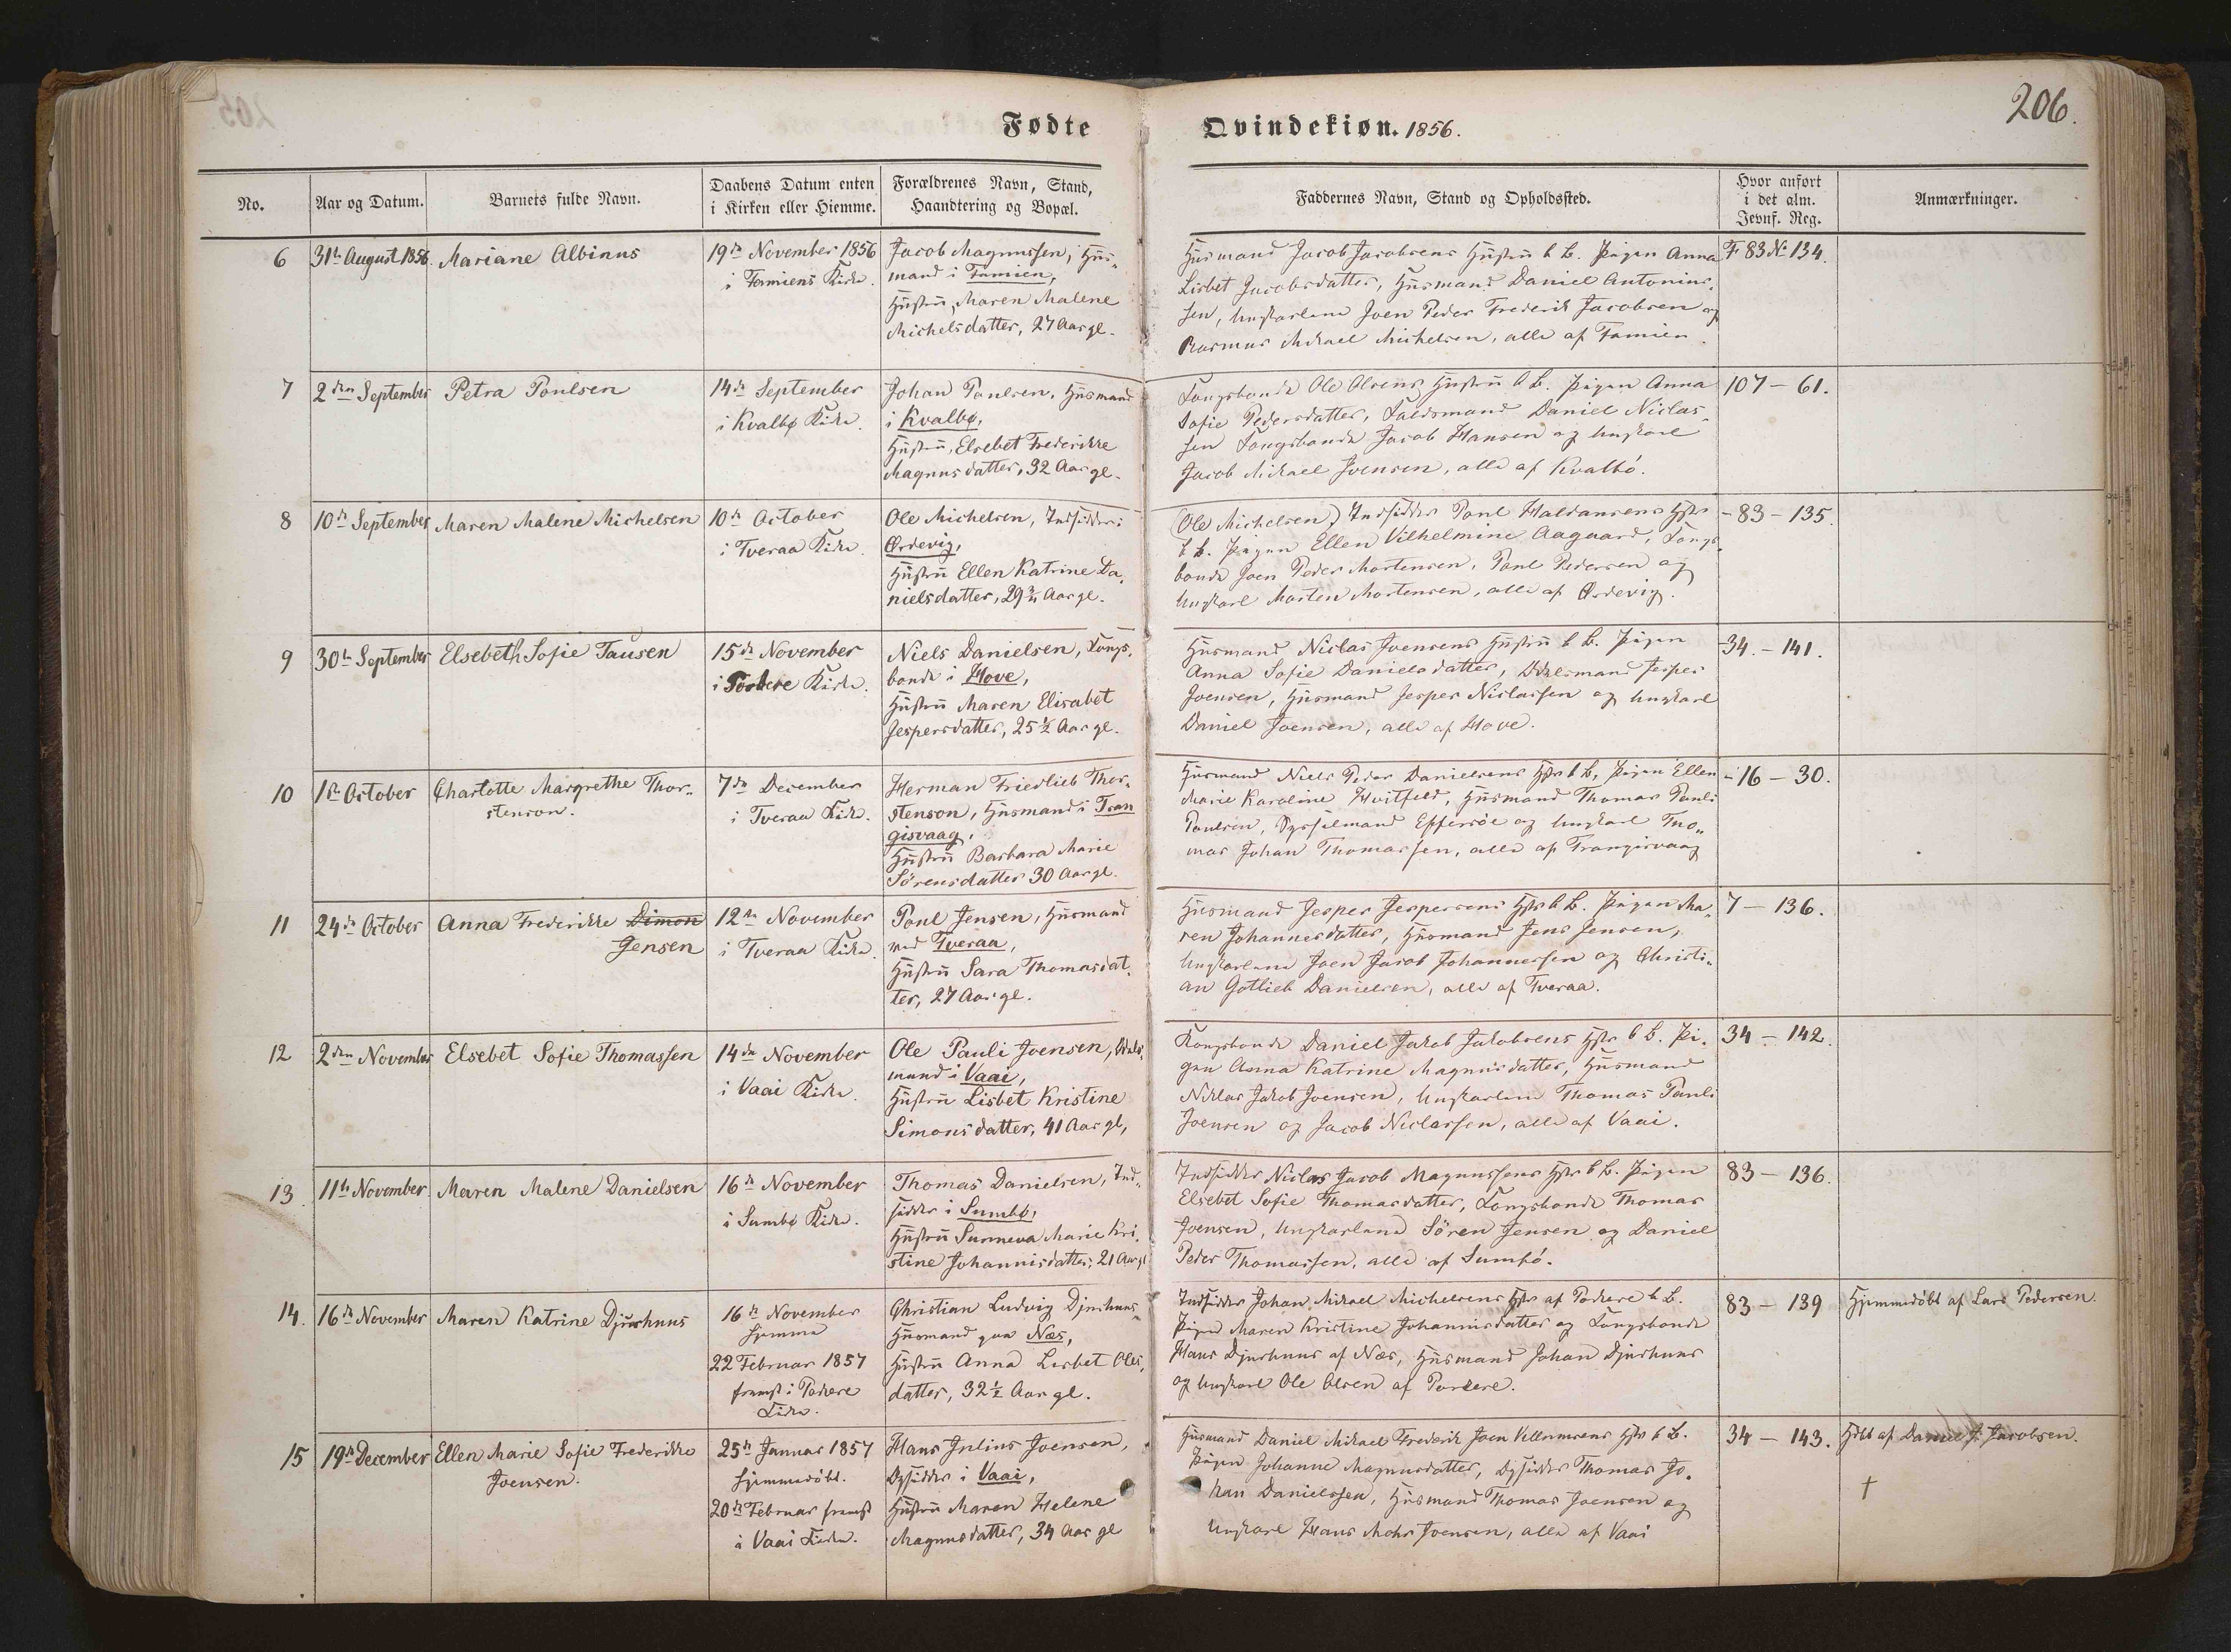 206.
Fødte
Qvindekiøn. 1856.
No.
Aar og Datum.
Barnets fulde Navn.
Daabens Datum enten
i Kirken eller Hiemme.
Forældrenes Navn, Stand,
Haandtering og Bopæl.
Faddernes Navn, Stand og Opholdssted.
Hvor anført
i det alm.
Jevnf. Reg.
Anmærkninger.
6
31te August 1856.
Mariane Albinus
19de November 1856
i Famiens Kirke.
Jacob Magnussen, Huus-
mand i Famien,
Hustru, Maren Malene
Michelsdatter, 27 Aar gl.
Huusmand Jacob Jacobsens Hustru b. B. Pigen Anna
Lisbet Jacobsdatter, Huusmand Daniel Antonius-
sen, Ungkarlene Joen Peder Frederik Jacobsen og
Rasmus Mikael Michelsen, alle af Famien.
F 83 No 134.
7
2den September
Petra Poulsen
14de September
i Kvalbø Kirke.
Johan Poulsen, Huusmand
i Kvalbø,
Hustru, Elsebet Frederikke
Magnusdatter, 32 Aar gl.
Kongsbonde Ole Olsens Hustru b. B. Pigen Anna
Sofie Pedersdatter, Huusmand Daniel Niclas-
sen Kongsbonde Jacob Hansen og Ungkarl
Jacob Mikael Joensen, alle af Kvalbø.
107 – 61.
8
10de September
Maren Malene Michelsen
10de October
i Tveraa Kirke.
Ole Michelsen, Indsidder i
Ørdevig,
Hustru Ellen Katrine Da-
nielsdatter, 29 3/4 Aar gl.
(Ole Michelsen) Indsidder Poul Haldansens Hstr
b. B. Pigen Ellen Vilhelmine Aagaard, Kongs-
bonde Joen Peder Mortensen, Poul Pedersen og
Ungkarl Morten Mortensen, alle af Ørdevig.
– 83 – 135.
9
30te September
Elsebeth Sofie Tausen
15de November
i Porkere Kirke.
Niels Danielsen, Kongs-
bonde i Hove,
Hustru Maren Elisabet
Jespersdatter, 25 1/2 Aar gl.
Huusmand Niclas Joensens Hustru b. B. Pigen
Anna Sofie Danielsdatter, Odelsmand Jesper
Joensen, Huusmand Jesper Niclassen og Ungkarl
Daniel Joensen, alle af Hove.
– 34. – 141.
10
1ste October
Charlotte Margrethe Thor-
stenson.
7de December
i Tveraa Kirke.
Herman Friedlieb Thor-
stenson, Huusmand i Tran
gisvaag,
Hustru Barbara Marie
Sørensdatter 30 Aar gl.
Huusmand Niels Peder Danielsens Hstr b. B. Pigen Ellen
Marie Karoline Hvitfeld, Huusmand Thomas Pauli
Poulsen, Sysselmand Effersøe og Ungkarl Tho-
mas Johan Thomassen, alle af Trangisvaag
– 16 – 30.
11
24de October
Anna Frederikke Dimon
Jensen
12te November
i Tveraa Kirke.
Poul Jensen, Huusmand
ved Tveraa,
Hustru Sara Thomasdat-
ter, 27 Aar gl.
Huusmand Jesper Jespersens Hstr b. B. Pigen Ma-
ren Johannesdatter, Huusmand Jens Jensen,
Ungkarlene Joen Jacob Johannessen og Christi-
an Gotlieb Danielsen, alle af Tveraa.
7 – 136.
12
2den November
Elsebet Sofie Thomassen
14de November
i Vaai Kirke.
Ole Pauli Joensen, Odels-
mand i Vaai,
Hustru Lisbet Kristine
Simonsdatter, 41 Aar gl,
Kongsbonde Daniel Jakob Jakobsens Hstr b. B. Pi-
gen Anna Katrine Magnusdatter, Huusmand
Niklas Jakob Joensen, Ungkarlene Thomas Pauli
Joensen og Jacob Niclassen, alle af Vaai.
34 – 142.
13.
11te November
Maren Malene Danielsen
16de November
i Sumbø Kirke.
Thomas Danielsen, Ind-
sidder i Sumbø,
Hustru Sunneva Marie Kri-
stine Johannisdatter, 21 Aar gl
Indsidder Niclas Jacob Magnussens Hstr b. B. Pigen
Elsebet Sofie Thomasdatter, Kongsbonde Thomas
Joensen, Ungkarlene Sören Jensen og Daniel
Peder Thomassen, alle af Sumbø.
83 – 136.
14.
16de November
Maren Katrine Djurhuus
16de November
hjemme
22 Februar 1857
fremst i Porkere
Kirke.
Christian Ludvig Djurhuus,
Huusmand paa Næs,
Hustru Anna Lisbet Oles-
datter, 32 1/2 Aar gl.
Indsidder Johan Mikael Michelsens Hstr af Porkere b. B.
Pigen Maren Kristine Johannisdatter og Kongsbonde
Hans Djurhuus af Næs, Huusmand Johan Djurhuus
og Ungkarl Ole Olsen af Porkere.
83 – 139
Hjemmedöbt af Lars Pedersen.
15
19de December
Ellen Marie Sofie Frederikke
Joensen.
25de Januar 1857
hjemmedöbt.
20de Februar fremst
i Vaai Kirke.
Hans Julius Joensen,
Indsidder i Vaai,
Hustru Maren Helene
Magnusdatter, 34 Aar gl
Huusmand Daniel Mikael Frederik Joen Villumsens Hstr b. B.
Pigen Johanne Magnusdatter, Indsidder Thomas Jo-
han Danielssen, Huusmand Thomas Joensen og
Ungkarl Hans Mohr Joensen, alle af Vaai
34 – 143.
Hdbt af Daniel J. Jacobsen.
†